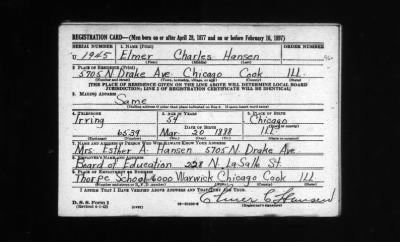 REGISTRATION CARD—(Men born on or after April 28, 1877 and on or before February 16, 1897)
SERIAL NUMBER 1. NAME (Print) ORDER NUMBER
U 1945 Elmer Charles Hansen
(First) (Middle) (Last)
2. PLACE OF RESIDENCE (Print)
5705 N. Drake Ave. Chicago Cook ILL.
(Number and street) (Town, township, village, or city) (County) (State)
[THE PLACE OF RESIDENCE GIVEN ON THE LINE ABOVE WILL DETERMINE LOCAL BOARD
JURISDICTION; LINE 2 OF REGISTRATION CERTIFICATE WILL BE IDENTICAL]
3. MAILING ADDRESS
Same
[Mailing address if other than place indicated on line 2. If same insert word same]
4. TELEPHONE 5. AGE IN YEARS 6. PLACE OF BIRTH
Irving 54 Chicago
DATE OF BIRTH
6539 Mar. 20 1888 ILL.
(Exchange) (Number) (Mo.) (Day) (Yr.) (State or country)
7. NAME AND ADDRESS OF PERSON WHO WILL ALWAYS KNOW YOUR ADDRESS
Mrs. Esther A. Hansen 5705 N. Drake Ave
8. EMPLOYER'S NAME AND ADDRESS
Board of Education 228 N. LaSalle St.
9. PLACE OF EMPLOYMENT OR BUSINESS
Thorpe School 6000 Warwick Chicago Cook ILL
(Number and street or R. F. D. number) (Town) (County) (State)
I AFFIRM THAT I HAVE VERIFIED ABOVE ANSWERS AND THAT THEY ARE TRUE.
Elmer C Hansen
D. S. S. Form 1
(Revised 4-1-42) (over) (Registrant's signature)